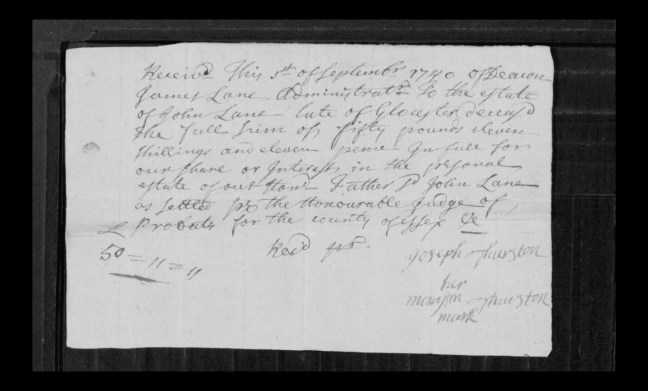 Receivd This 3d of Septembr 1740 of Deacon
James Lane Administratr. to the estate
of John Lane late of Glocester deceasd
the full Sum of fifty pounds eleven
shillings and eleven pence In full for
our share or Interest in the personal
estate of our Hond. Father Sd John Lane
as settled pr the Honourable Judge of
Probate for the county of Essex &c
£ 50 = 11 = 11
Recd pr.
Joseph Thurston
her
mary m Thurston
mark